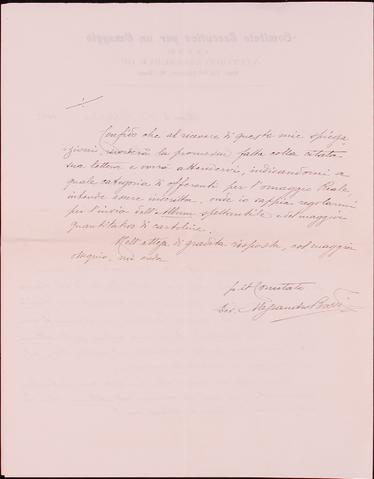 Confido che al ricevere di queste mie spiega
zioni, la promessa fatta colla citata
sua lettera e vorrà attendervi, indicandomi a
quale categoria di offerenti per l'omaggio Reale
intende essere inscritta, onde io sappia regolarmi
per l'invio dell'Album spettantile e del maggior
quantitativo di cartoline.
Nell'attesa di gradita risposta, col maggior
ossequio, mi creda
p. il Comitato
Alessandro